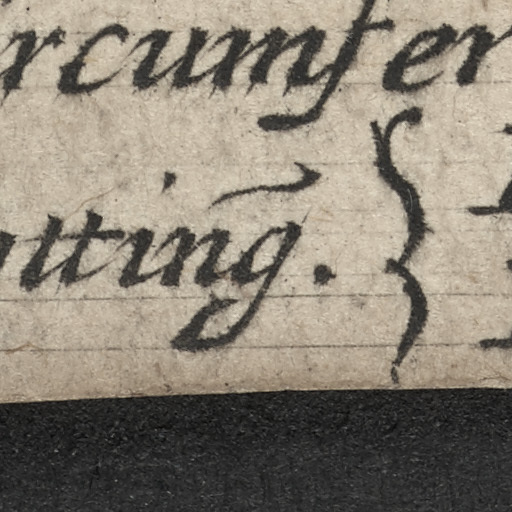 rcumfer
tting̃.